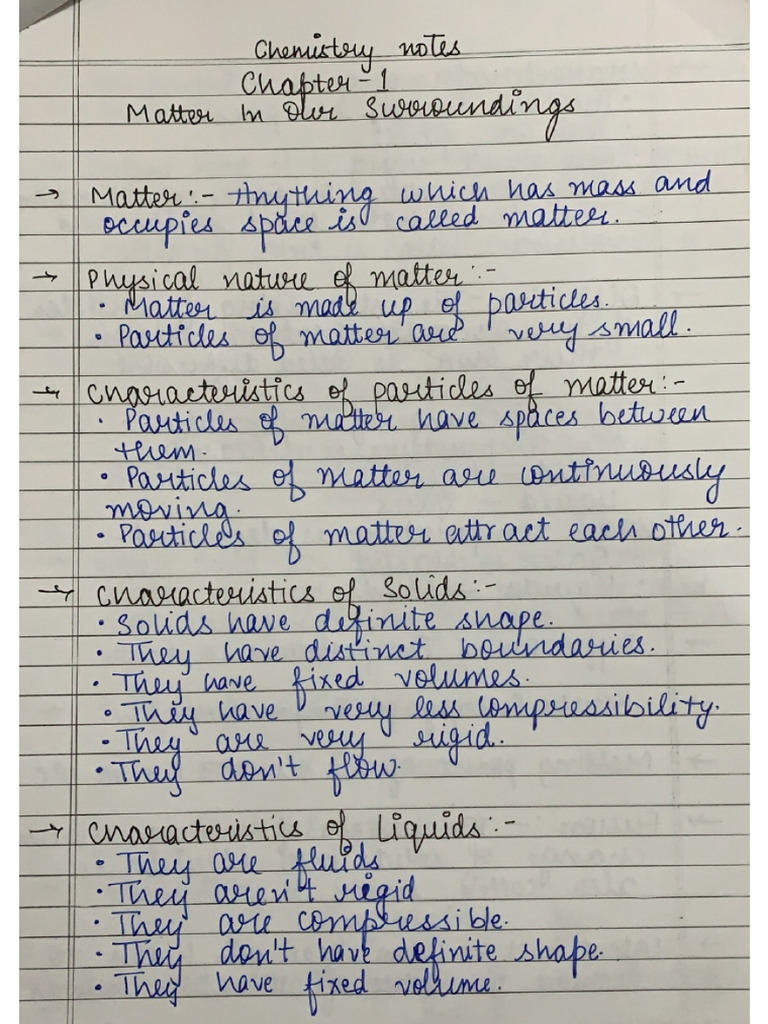 Chemistry notes
Chapter-1
Matter In Our Surroundings
→ Matter:- Anything which has mass and
occupies space is called matter.
→ Physical nature of matter:-
• Matter is made up of particles.
• Particles of matter are very small.
→ Characteristics of particles of matter:-
• Particles of matter have spaces between
them.
• Particles of matter are continuously
moving.
• Particles of matter attract each other.
→ Characteristics of Solids:-
• Solids have definite shape.
• They have distinct boundaries.
• They have fixed volumes.
• They have very less compressibility.
• They are very rigid.
• They don't flow.
→ Characteristics of Liquids:-
• They are fluids
• They aren't rigid
• They are compressible.
• They don't have definite shape.
• They have fixed volume.